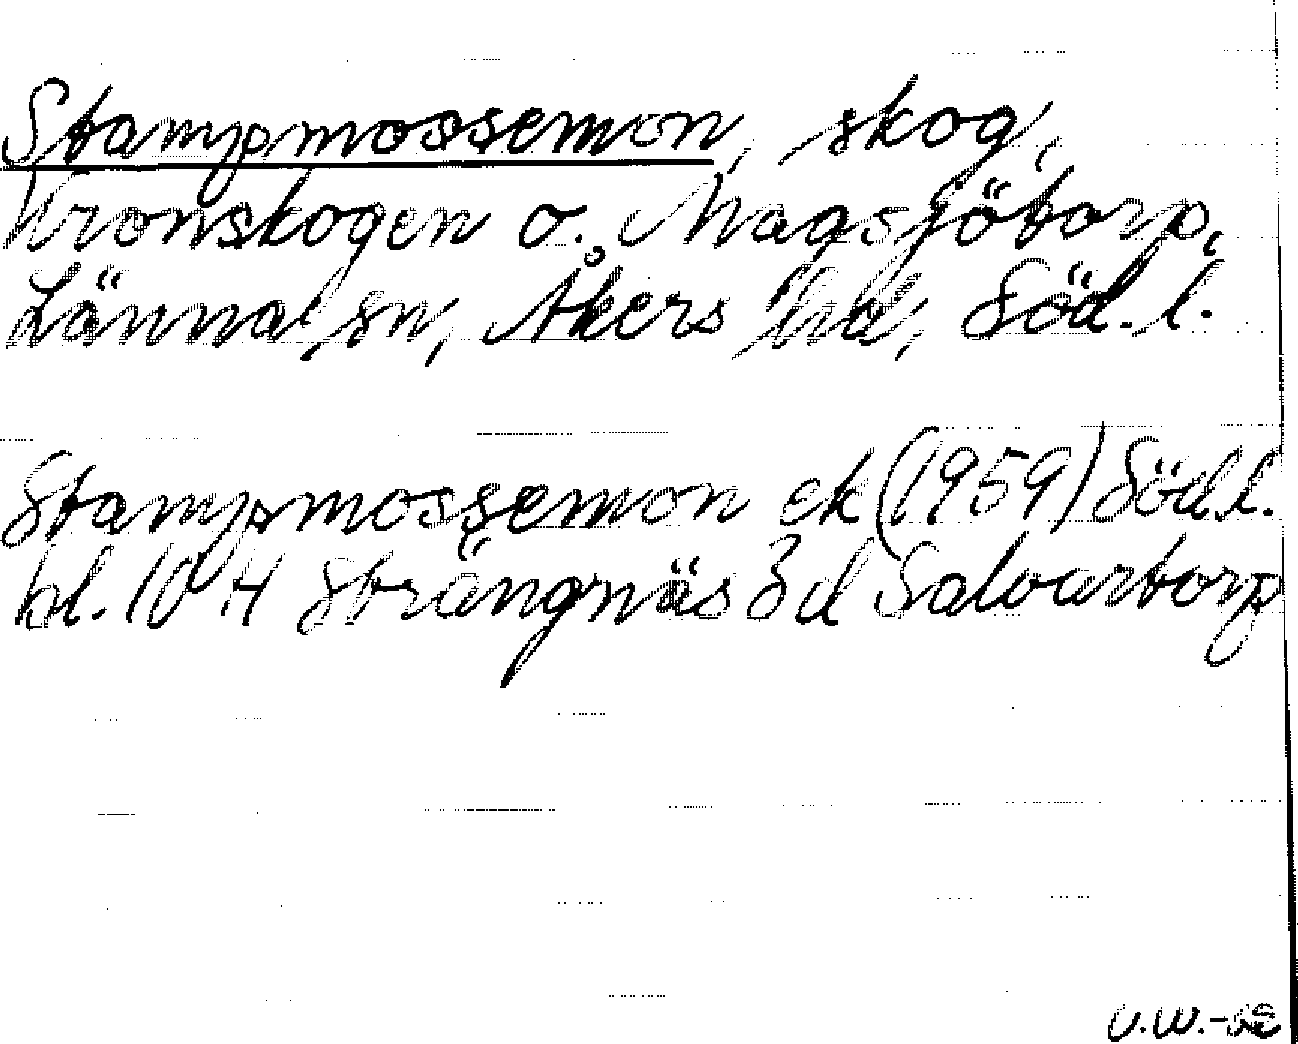 Stampmossemon, skog,
Kronskogen o. Magsjötorp,
Länna sn, Åkers hd, Söd. l.
Stampmossemon ek (1959) Söd.l.
bl. 10 H Strängnäs 3d Salvartorp
U.W.-68